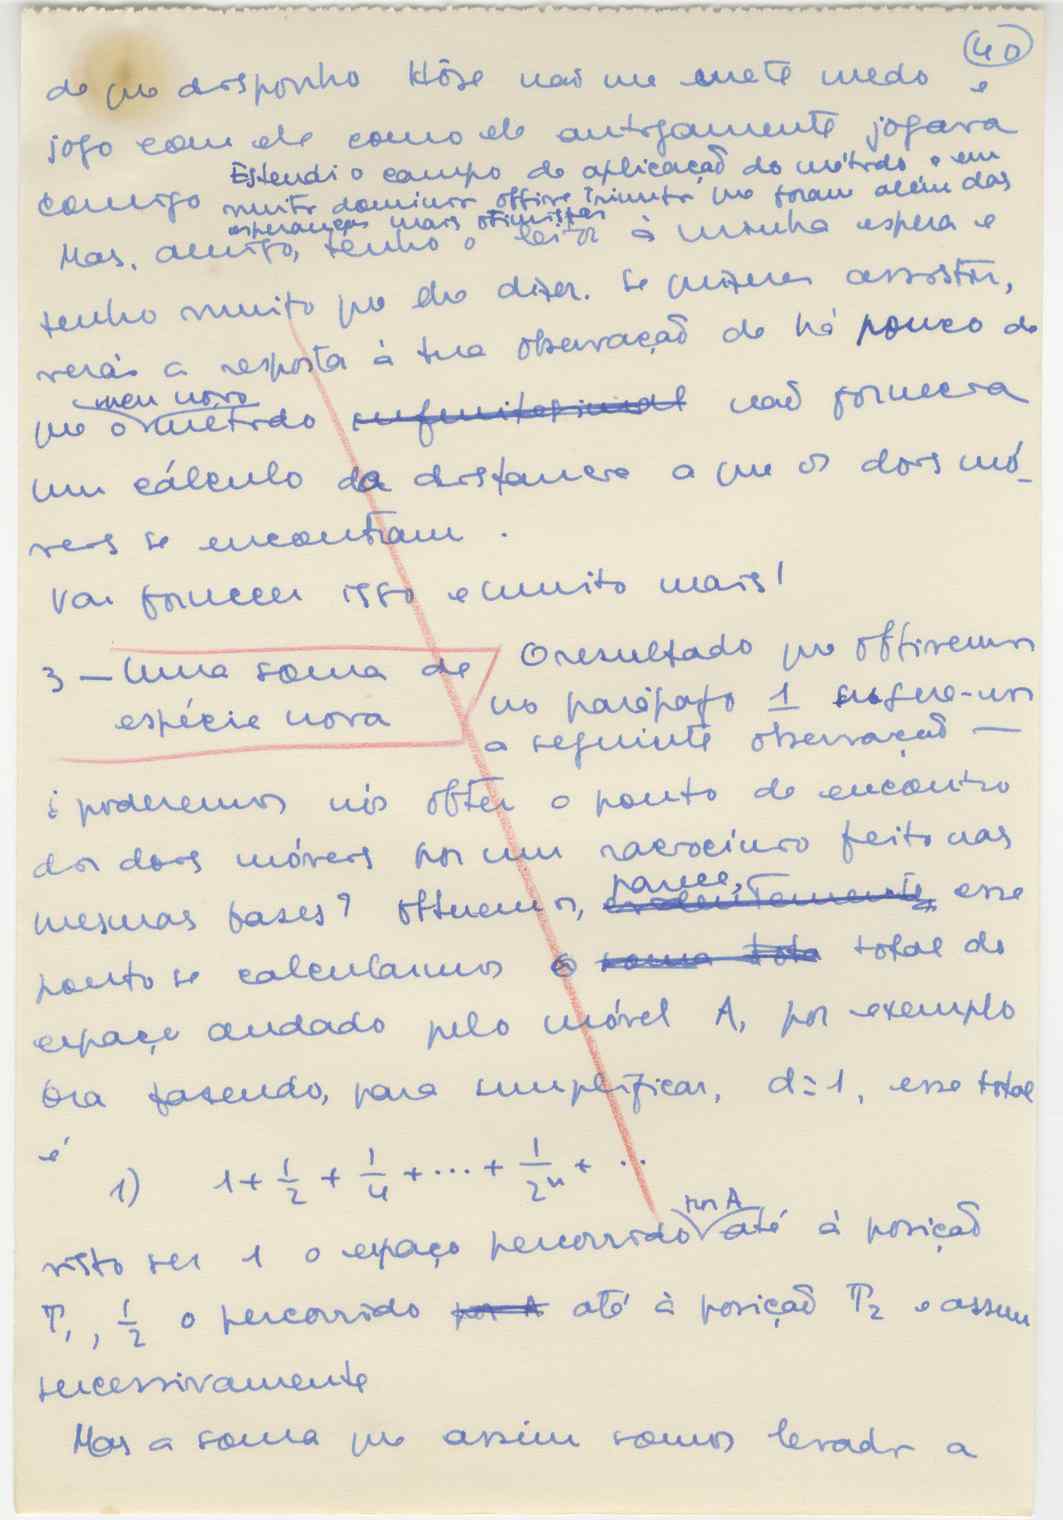 40
de que disponho Hôje não me mete medo e
jogo com ele como ele antigamente jogava
comigo Estendi o campo de aplicação do método e em
muitos domínios obtive triunfos que foram além das
esperanças mais otimistas
Mas, amigo, tenho o leitor à minha espera e
tenho muito que lhe dizer. Se quizeres assistir,
verás a resposta à tua observação de há pouco de
que o meu novo método infinitesimal não fornecera
um cálculo da distancia a que os dois mó-
veis se encontram.
Vai fornecer isso e muito mais!
3 — Uma soma de
espécie nova
O resultado que obtivemos
no parágrafo 1 sugere-nos
a seguinte observação —
¿ poderemos nós obter o ponto de encontro
dos dois móveis por um raciocínio feito nas
mesmas bases? Obtuemos, parece, evidentemente, esse
ponto se calcularmos o soma tota total do
espaço andado pelo móvel A, por exemplo
Ora fazendo, para simplificar, d=1, esse total
é
1) 1 + 1/2 + 1/4 + ... + 1/2ⁿ + ...
visto ser 1 o espaço percorrido por A até à posição
P₁, 1/2 o percorrido por A até à posição P₂ e assim
sucessivamente
Mas a soma que assim somos levados a